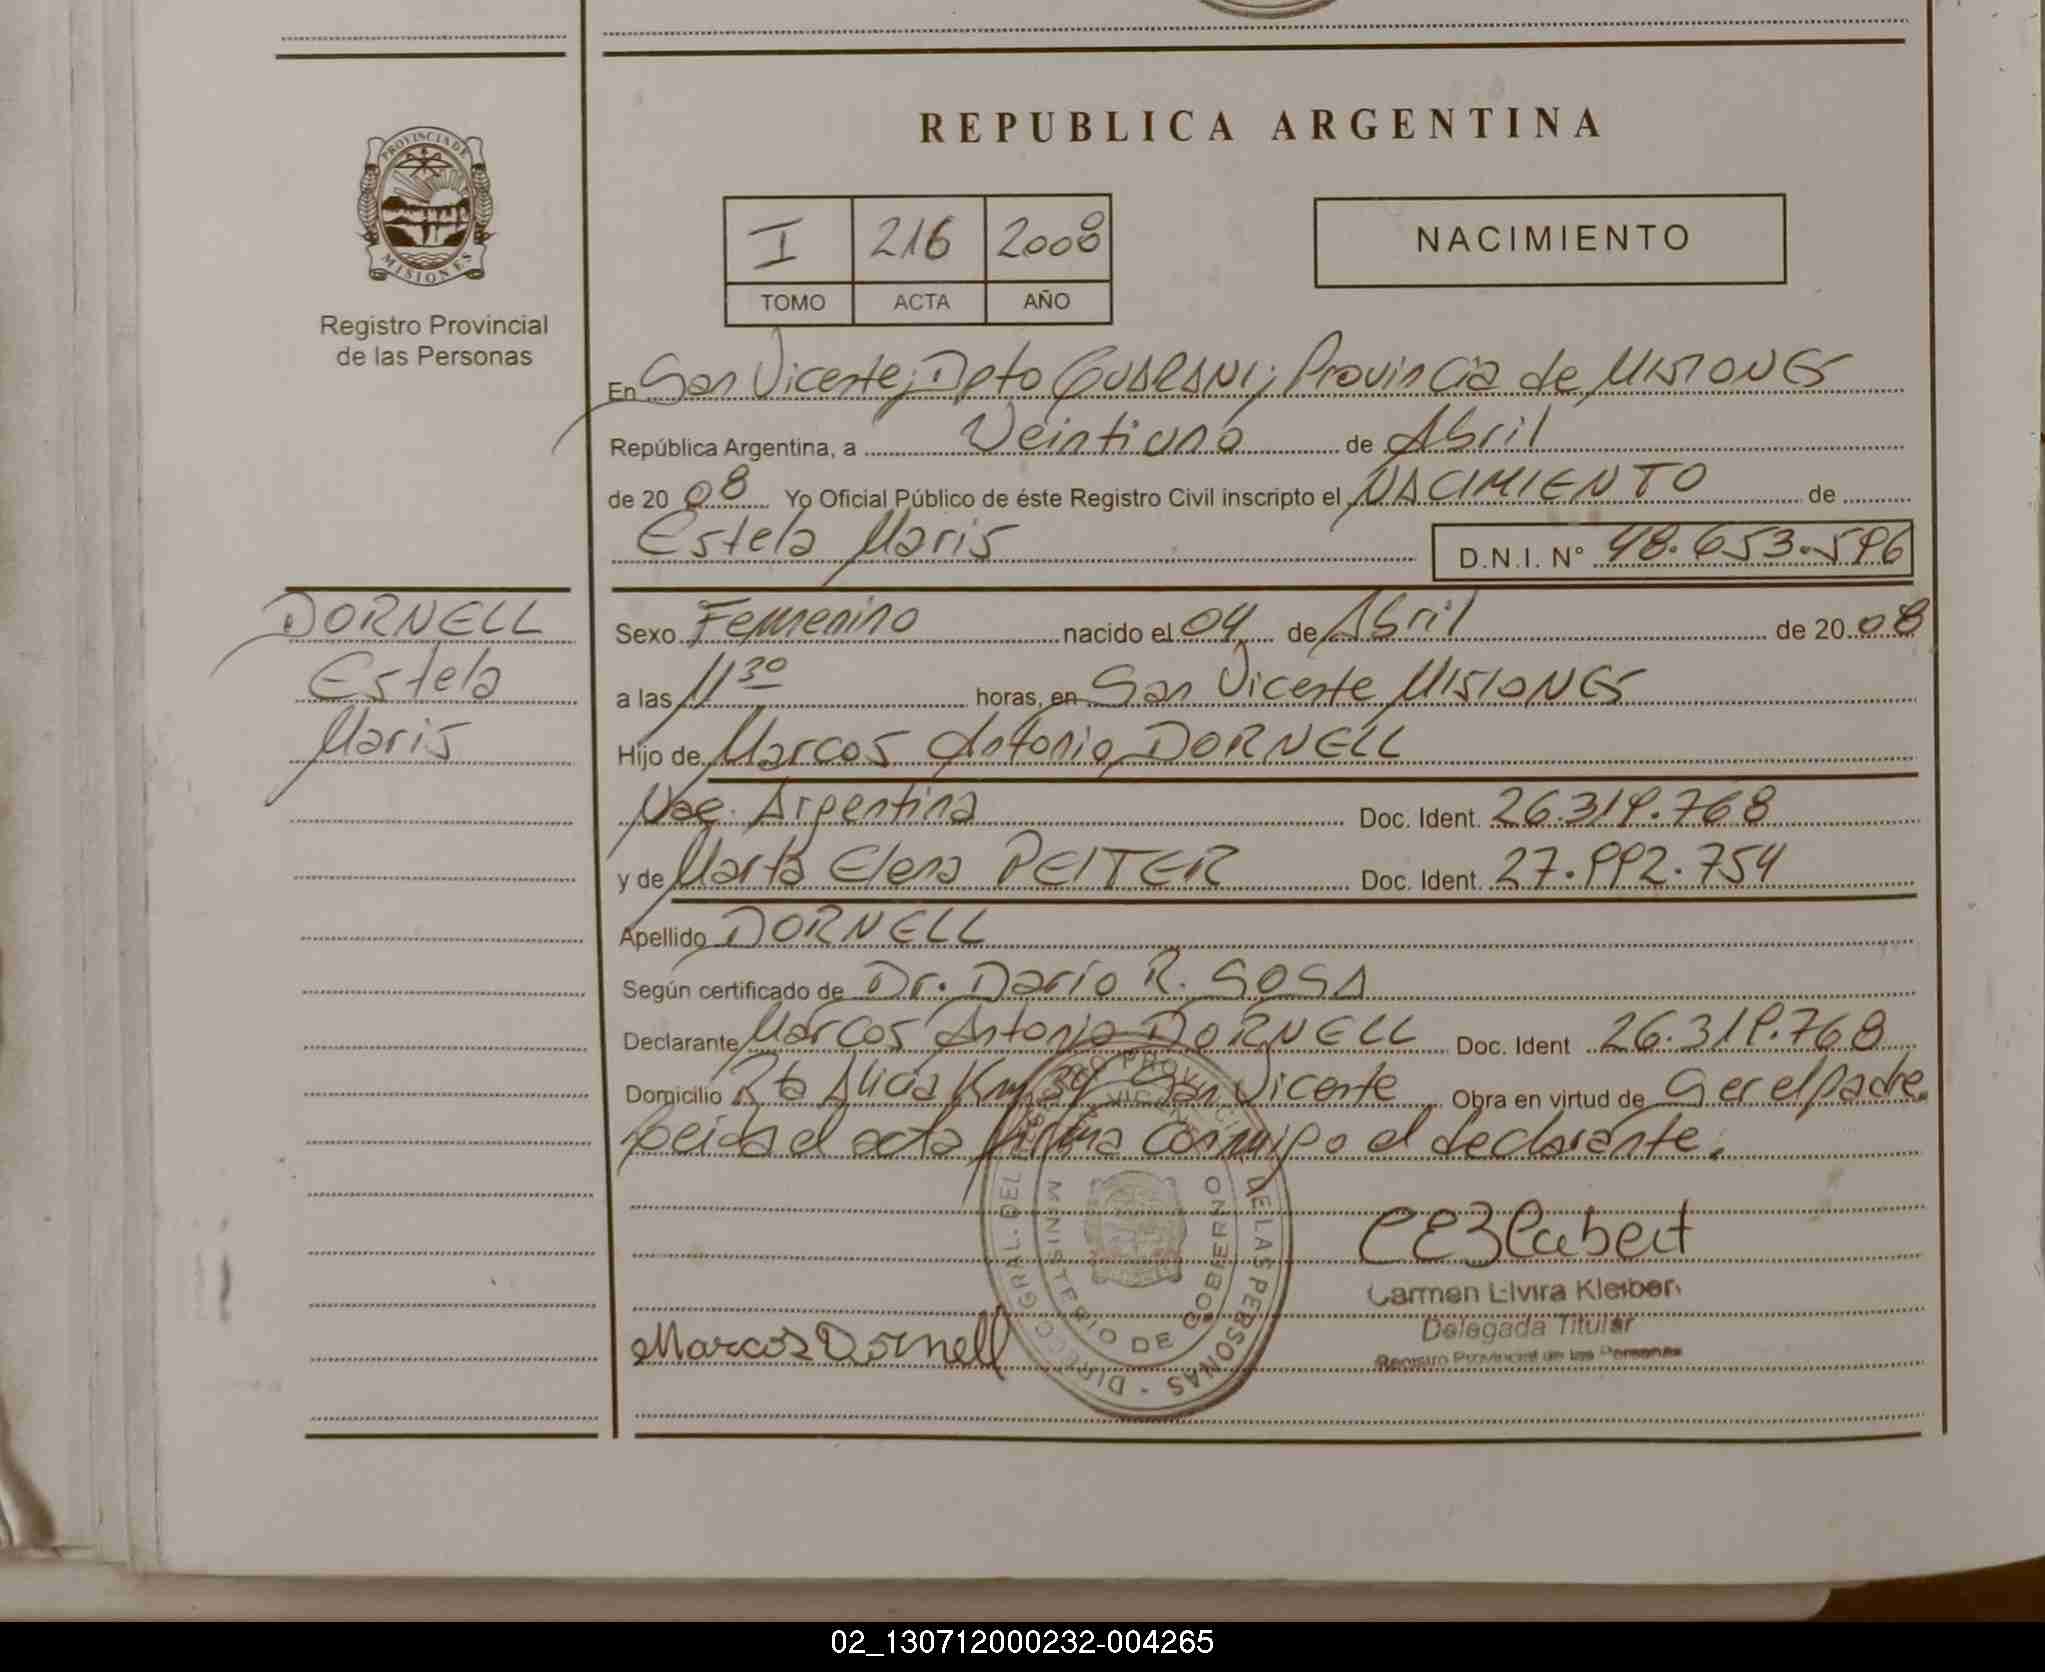 REPUBLICA ARGENTINA
PROVINCIA DE
MISIONES
Registro Provincial
de las Personas
I 216 2008
TOMO ACTA AÑO
NACIMIENTO
En San Vicente; Dpto GUARANI; Provincia de MISIONES
República Argentina, a Veintiuno de Abril
de 20 08 Yo Oficial Público de éste Registro Civil inscripto el NACIMIENTO de
Estela Maris D.N.I. N° 48.653.596
DORNELL
Estela
Maris
Sexo Femenino nacido el 04 de Abril de 20 08
a las 11 30 horas, en San Vicente MISIONES
Hijo de Marcos Antonio DORNELL
Nac. Argentina Doc. Ident. 26.319.768
y de Marta Elena PEITER Doc. Ident. 27.992.754
Apellido DORNELL
Según certificado de Dr. Darío R. SOSA
Declarante Marcos Antonio DORNELL Doc. Ident 26.319.768
Domicilio Rta Alicia Km 34 San Vicente Obra en virtud de Ser el padre.
Leida el acta firma conmigo el declarante.
DIRECC. GRAL. DEL REGISTRO PROVINCIAL DE LAS PERSONAS
MINISTERIO DE GOBIERNO
Carmen Elvira Kleiber
Delegada Titular
Registro Provincial de las Personas
Marcos Dornell
02_130712000232-004265